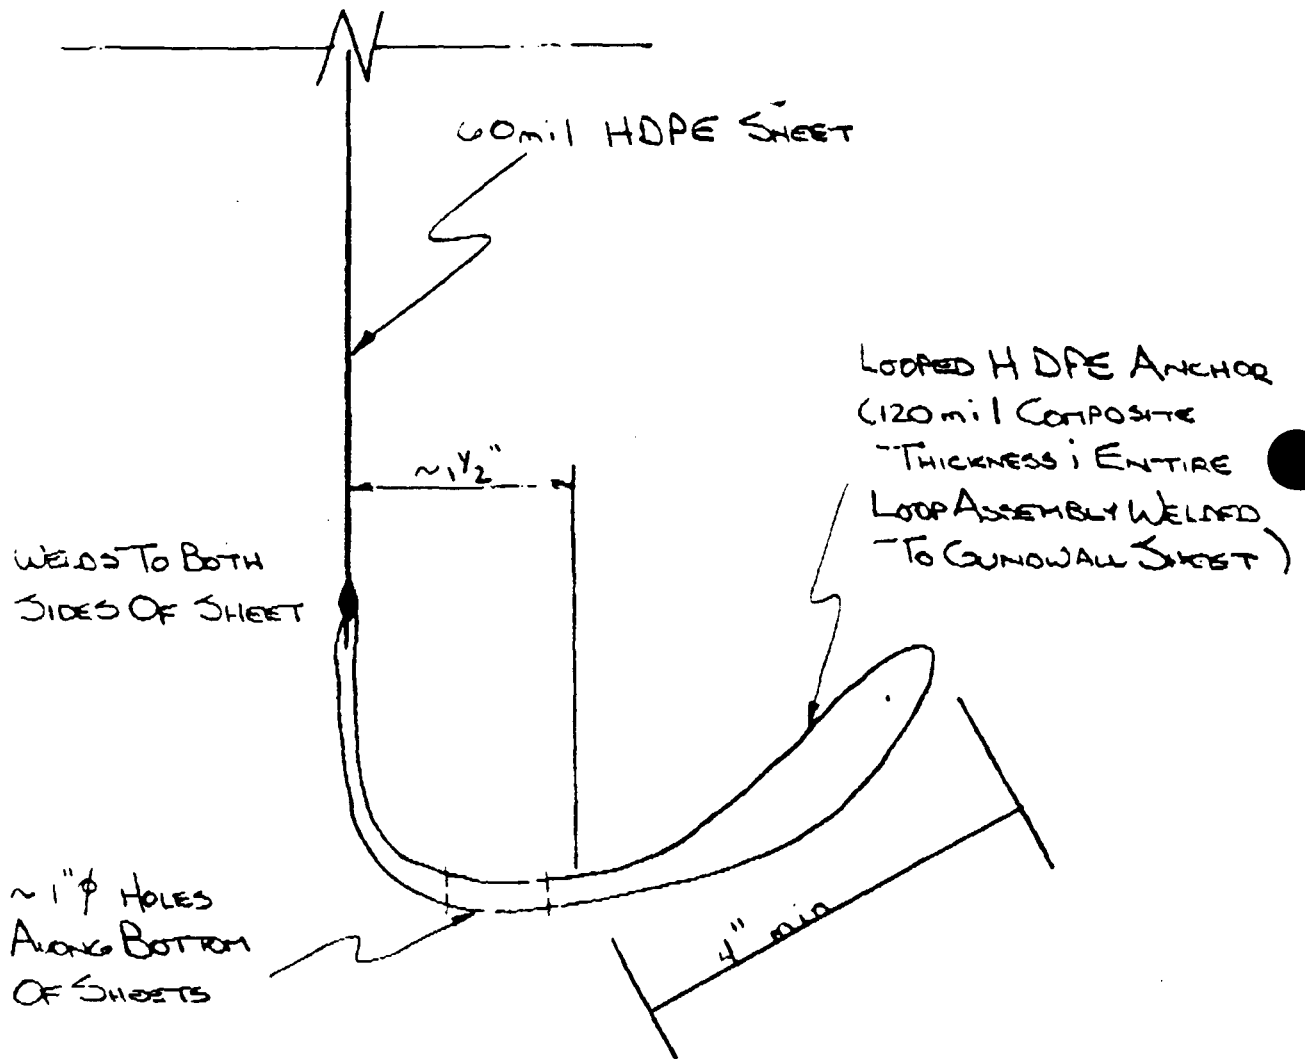 60mil HDPE SHEET
LOOPED HDPE ANCHOR
(120mil COMPOSITE
THICKNESS; ENTIRE
LOOP ASSEMBLY WELDED
TO GUNDWALL SHEET)
~1 1/2"
WELDS TO BOTH
SIDES OF SHEET
~1"ϕ HOLES
ALONG BOTTOM
OF SHEETS
4" min